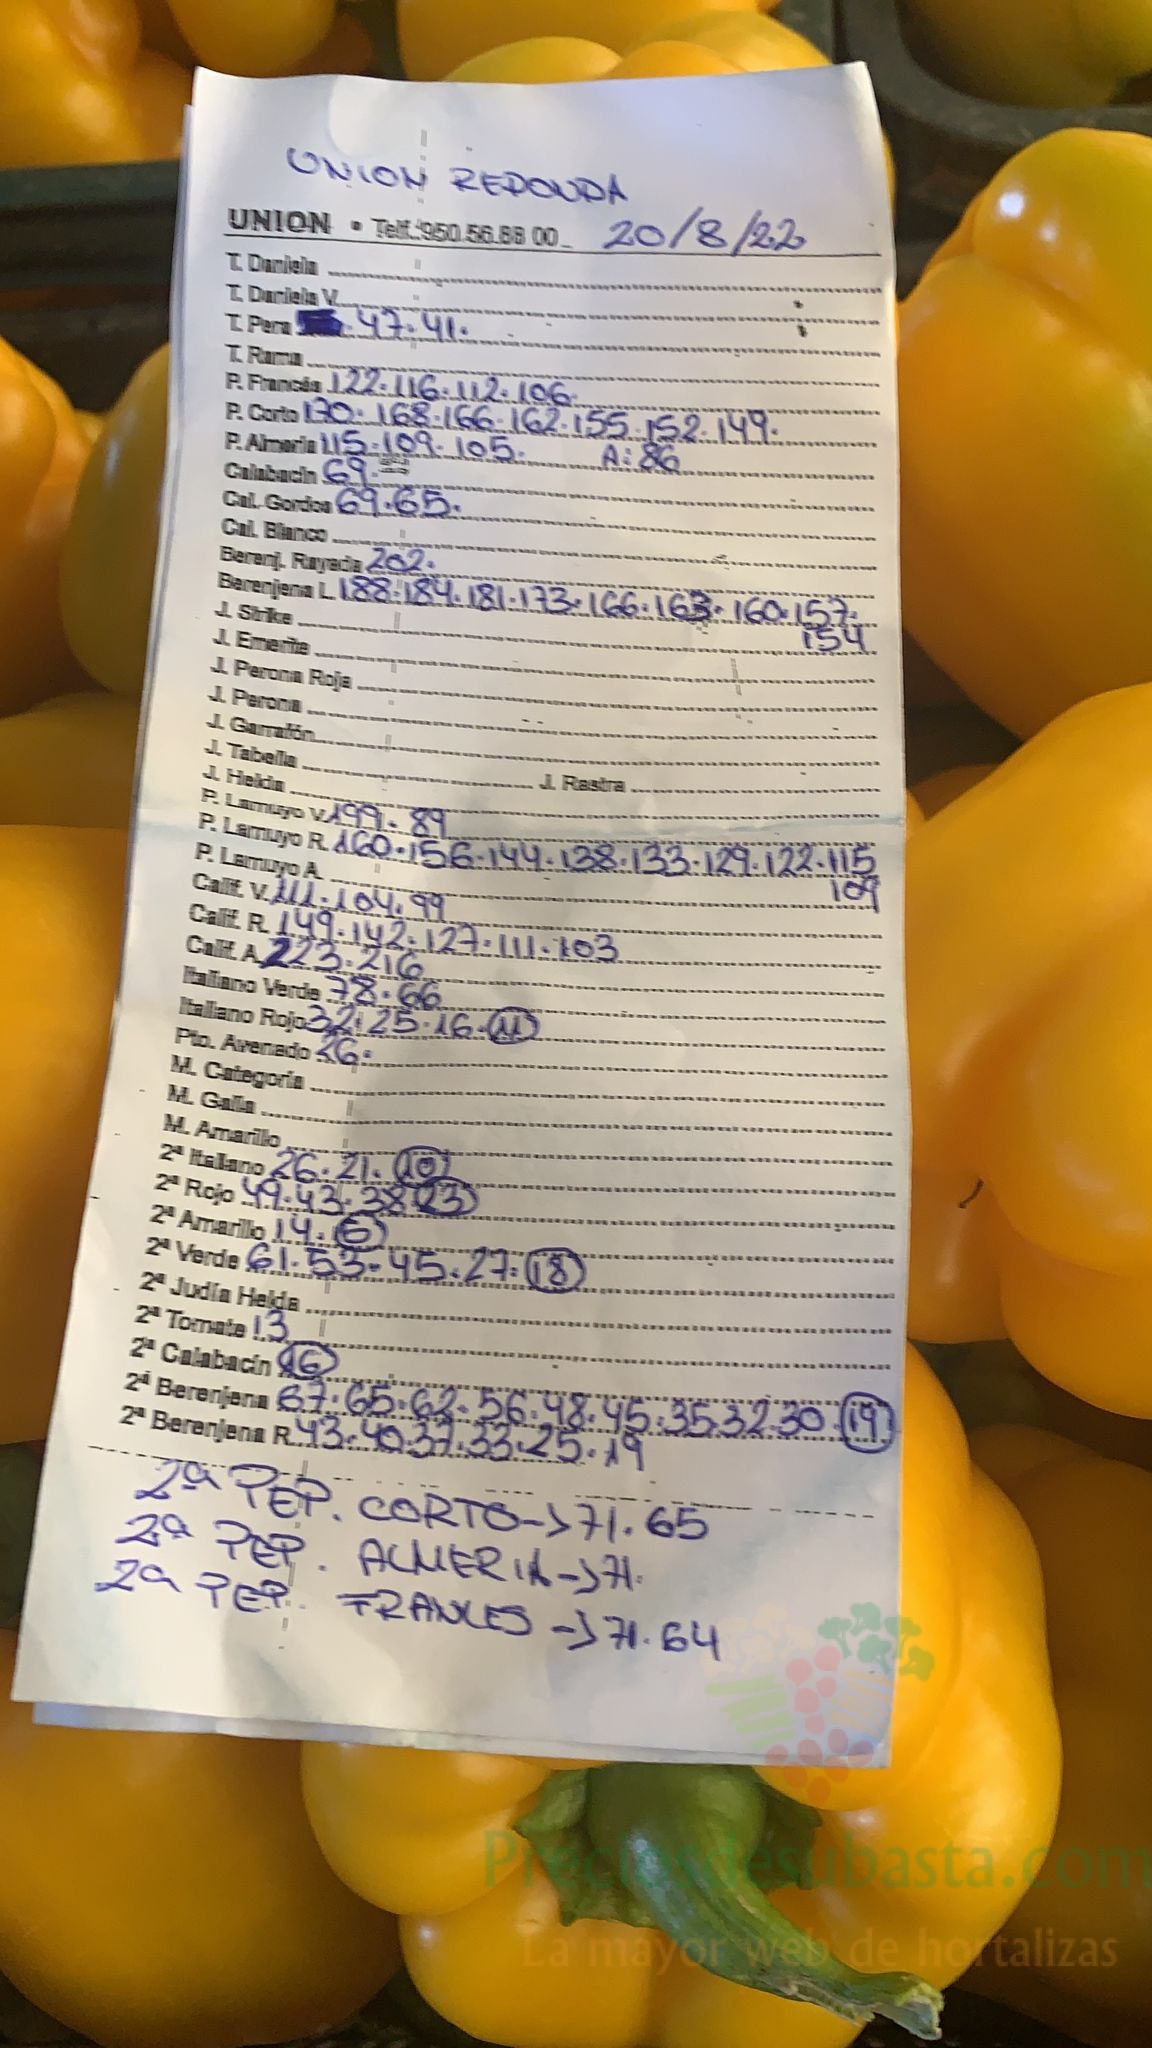 UNION REDONDA
UNION • Telf.:950.56.88 00 20/8/22
T. Daniela
T. Daniela V.
T. Pera 47.41.
T. Rama
P. Francés 122.116.112.106.
P. Corto 170.168.166.162.155.152.149.
P. Almería 115.109.105. A:86
Calabacín 69.
Cal. Gordos 69.65.
Cal. Blanco
Berenj. Rayada 202.
Berenjena L. 188.184.181.173.166.163.160.157.
154
J. Strike
J. Emerite
J. Perona Roja
J. Perona
J. Garrafón
J. Tabella J. Rastra
J. Helda
P. Lamuyo V. 199. 89
P. Lamuyo R. 160.156.144.138.133.129.122.115
109
P. Lamuyo A.
Calif. V. 111.104.99
Calif. R. 149.142.127.111.103
Calif. A. 223.216
Italiano Verde 78.66
Italiano Rojo 32.25.16.11
Pto. Avenado 26.
M. Categoría
M. Galia
M. Amarillo
2ª Italiano 26.21.10
2ª Rojo 49.43.38.23
2ª Amarillo 14.6
2ª Verde 61.53.45.27.18
2ª Judía Helda
2ª Tomate 13
2ª Calabacín 16
2ª Berenjena 67.65.62.56.48.45.35.32.30.19
2ª Berenjena R. 43.40.37.33.25.19
2ª PEP. CORTO->71.65
2ª PEP. ALMERIA->71.
2ª PEP. FRANCES->71.64
Preciosdesubasta.com
La mayor web de hortalizas